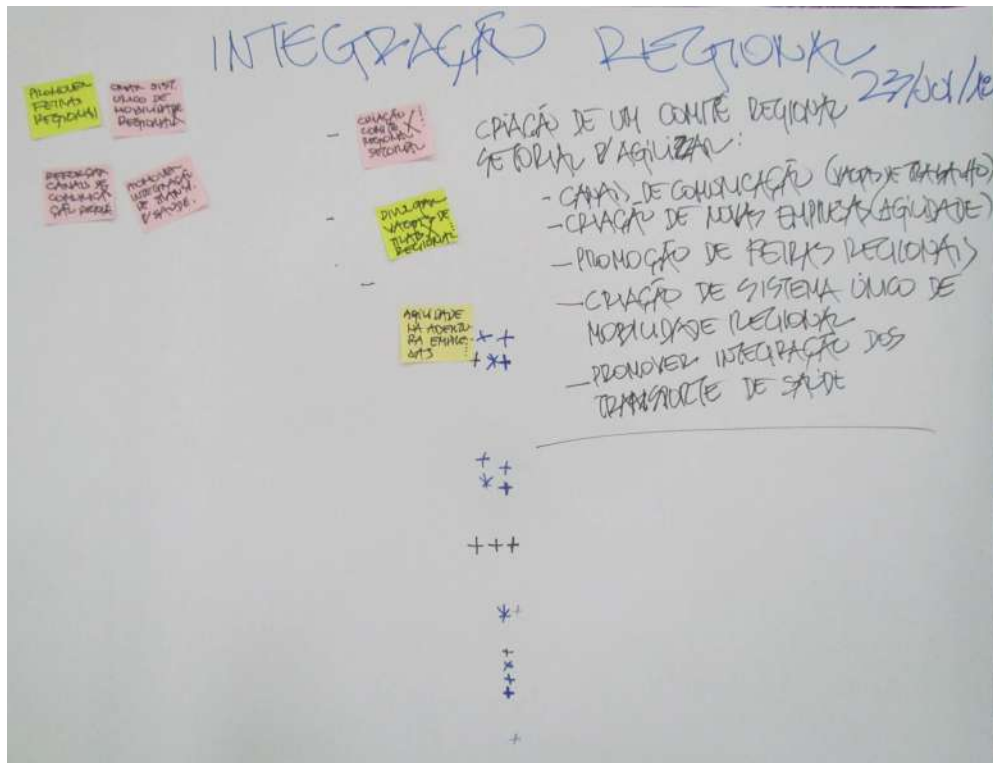 INTEGRAÇÃO REGIONAL
23/out/12
PROMOVER
FEIRAS
REGIONAI
CRIAR SIST.
ÚNICO DE
MOBILIDADE
REGIONAL
REFORÇAR
CANAIS DE
COMUNICA
ÇÃO
PROMOVER
INTEGRAÇÃO
DE TRANSP.
P/SAÚDE.
CRIAÇÃO
COMITÊ
REGIONAL
SETORIAL
DIVULGAR
VAGAS DE
TRAB.
REGIONAL
AGILIDADE
NA ABERTU
RA EMPRE
SAS
CRIAÇÃO DE UM COMITÊ REGIONAL
SETORIAL P/AGILIZAR:
- CANAIS DE COMUNICAÇÃO (VAGAS DE TRABALHO)
- CRIAÇÃO DE NOVAS EMPRESAS (AGILIDADE)
- PROMOÇÃO DE FEIRAS REGIONAIS
- CRIAÇÃO DE SISTEMA ÚNICO DE
MOBILIDADE REGIONAL
- PROMOVER INTEGRAÇÃO DOS
TRANSPORTE DE SAÚDE